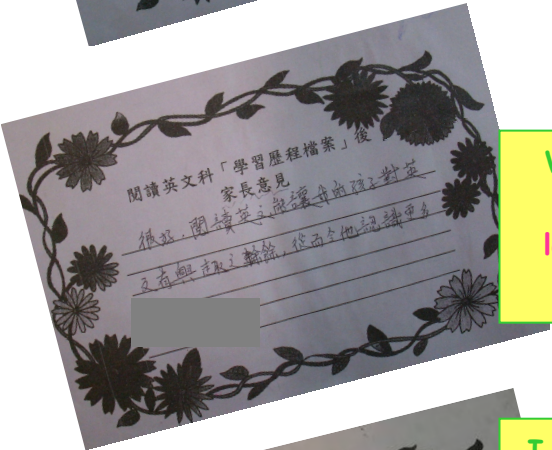 閱讀英文科「學習歷程檔案」後
家長意見
很好,閱讀英文能讓我的孩子對英
文有興趣之餘,從而令他認識更多
I